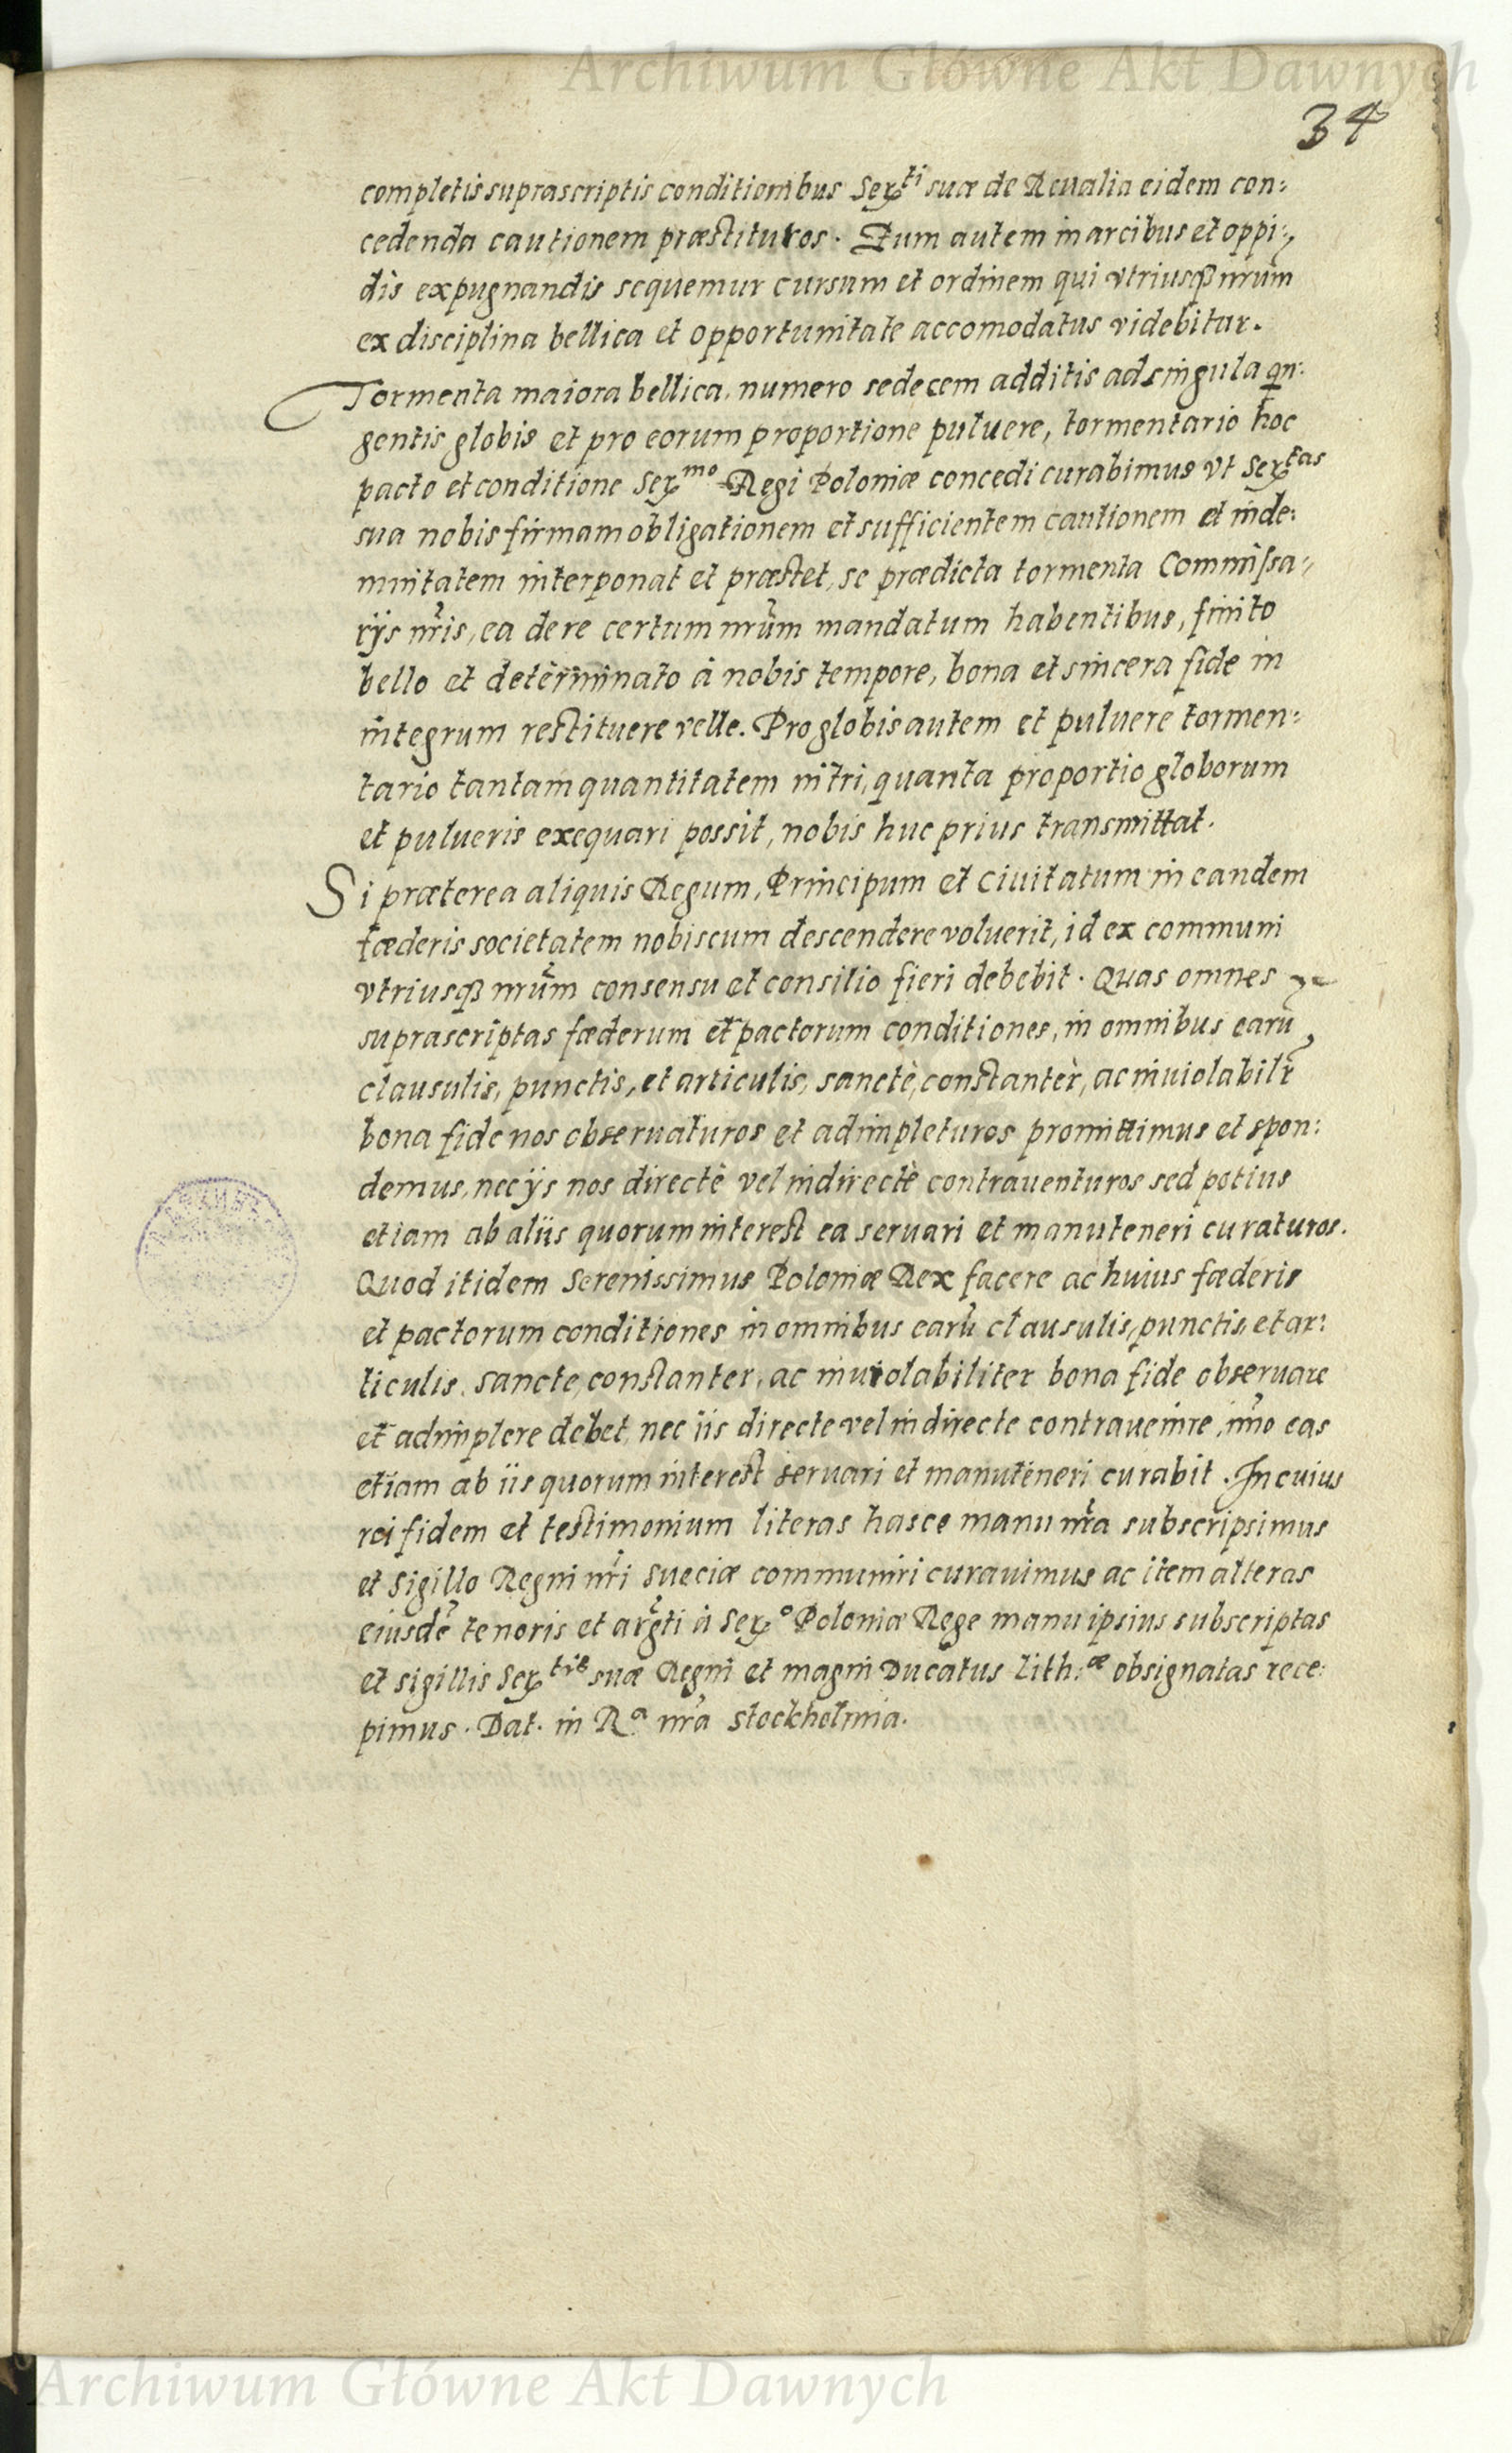 Archiwum Główne Akt Dawnych
34
completis suprascriptis conditionibus Ser^ti suæ de Reualia eidem con:
cedenda cautionem præstituros. Tum autem in arcibus et oppi:
dis expugnandis sequemur cursum et ordinem qui vtriusq nrum
ex disciplina bellica et opportunitate accomodatus videbitur.
Tormenta maiora bellica, numero sedecem additis ad singula qn:
gentis globis et pro eorum proportione puluere, tormentario hoc
pacto et conditione Ser^mo Regi Poloniæ concedi curabimus vt Ser^tas
sua nobis firmam obligationem et sufficientem cautionem et inde:
mnitatem interponat et præstet, se prædicta tormenta Commissa:
rijs nris, ea de re certum nrum mandatum habentibus, finito
bello et determinato à nobis tempore, bona et sincera fide in
integrum restituere velle. Pro globis autem et puluere tormen:
tario tantam quantitatem nitri, quanta proportio globorum
et pulueris exequari possit, nobis huc prius transmittat.
Si præterea aliquis Regum, Principum et Ciuitatum in eandem
fœderis societatem nobiscum descendere voluerit, id ex communi
vtriusq nrum consensu et consilio fieri debebit. Quas omnes
suprascriptas fœderum et pactorum conditiones, in omnibus earū
clausulis, punctis, et articulis, sanctè, constantèr, ac inuiolabilr
bona fide nos obseruaturos et adimpleturos promittimus et spon:
demus, nec ijs nos directè vel indirectè contrauenturos sed potius
etiam ab aliis quorum interest ea seruari et manuteneri curaturos.
Quod itidem Serenissimus Poloniæ Rex facere ac huius fœderis
et pactorum conditiones in omnibus earū clausulis, punctis, et ar:
ticulis, sancte, constanter, ac inuiolabiliter bona fide obseruare
et adimplere debet, nec iis directe vel indirecte contrauenire, imo eas
etiam ab iis quorum interest seruari et manuteneri curabit. In cuius
rei fidem et testimonium literas hasce manu nra subscripsimus
et Sigillo Regni nri Sueciæ communiri curauimus ac item alteras
eiusdē tenoris et argti à Ser^o Poloniæ Rege manu ipsius subscriptas
et sigillis Ser^tis suæ Regni et magni Ducatus Lith:^æ obsignatas rece:
pimus. Dat. in R^a nra Stockholmia.
Archiwum Główne Akt Dawnych